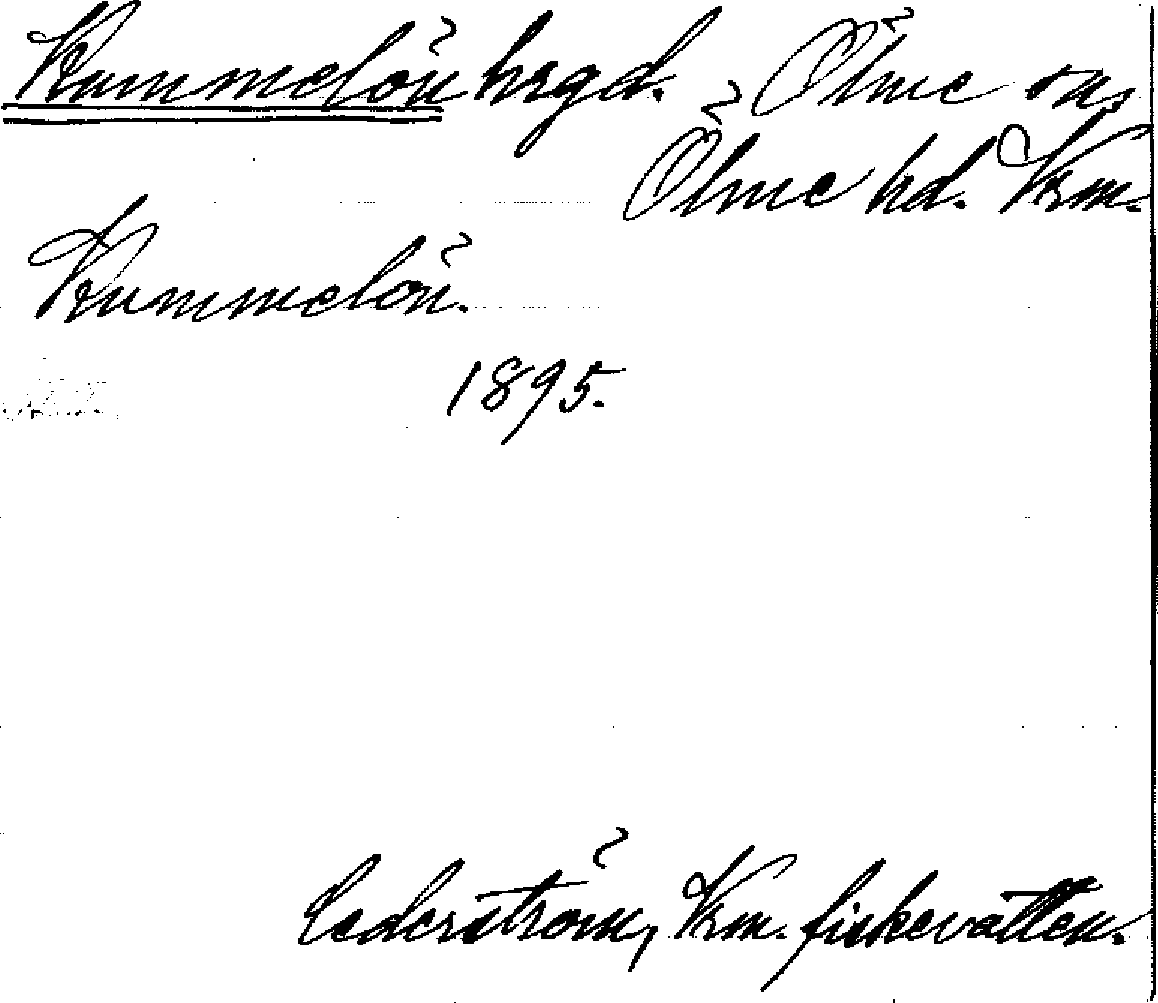 Kummelön hrgd. Ölme sn,
Ölme hd. Vrm.
Kummelön.
1895.
Cederström, Vrm. fiskevatten.